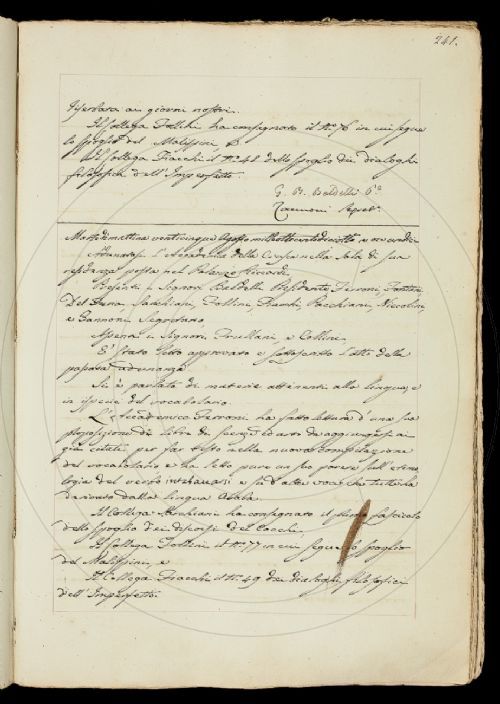 241.
ai giorni nostri.
Il Collega Follini ha consegnato il N.° 76 in cui segue
lo spoglio del Malispini, e
Il Collega Fiacchi il N.° 48 dello spoglio dei dialoghi
filosofici dell'Imperfetto.
G. B. Baldelli P.e
Zannoni Segret.
Martedì mattina venticinque Agosto milleottocentodiciotto a ore undici
Adunatasi l'Accademia della Crusca nella Sala di sua
residenza posta nel Palazzo Riccardi,
Presenti i Signori Baldelli Presidente, Ferroni, Fontani
Del Furia, Sarchiani, Follini, Fiacchi, Pacchiani, Niccolini,
e Zannoni Segretario,
Assenti i Signori Frullani, e Collini,
È stato letto approvato e sottoscritto l'atto della
passata adunanza.
Si è parlato di materie attenenti alla lingua, e
in ispecie del vocabolario.
L'Accademico Ferroni ha fatto lettura d'una sua
proposizione di libri di scienze ed arti da aggiungersi ai
già citati per far testo nella nuova compilazione
del vocabolario e ha letto pure un suo parere sull'etimo
logia del verbo intabaccarsi e su d'altre voci che
derivate dalla lingua Araba.
Il Collega Sarchiani ha consegnato il primo fascicolo
dello spoglio dei discorsi del Cocchi,
Il Collega Follini il N.° 77 in cui segue lo spoglio
del Malispini, e
Il Collega Fiacchi il N. 49 dei dialoghi filosofici
dell'Imperfetto.